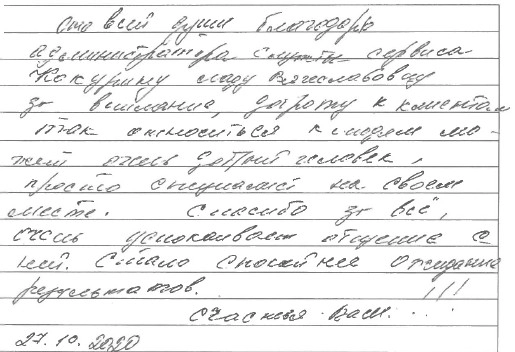 от всей души благодарю
администратора службы сервиса
Кокурину Владу Вячеславовну
за внимание, доброту к клиентам
так относиться к людям мо-
жет очень добрый человек,
просто специалист на своем
месте. Спасибо за всё,
очень успокаивает общение с
ней. Стало спокойнее ожидание
результатов. !!!
Счастья Вам. . . .
27.10.2020